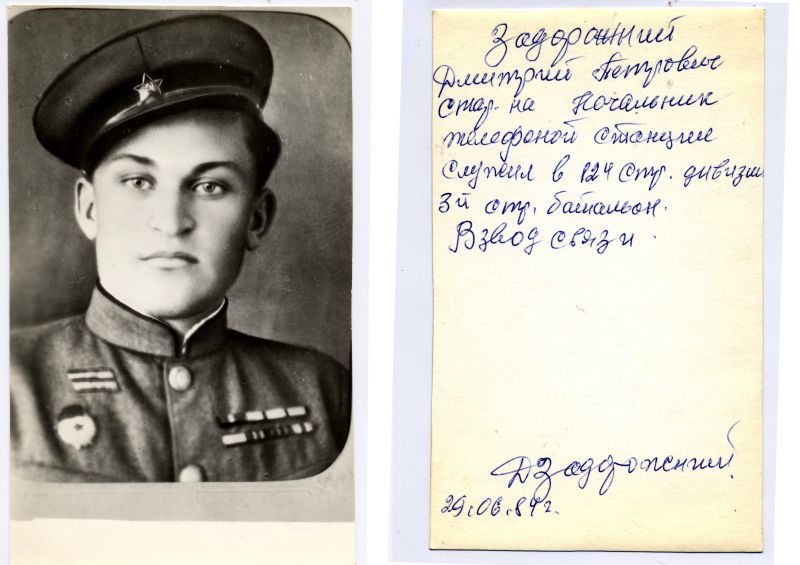 Задорожний
Дмитрий Петрович
стар. на Начальник
телефоной станции
служил в 124 стр. дивизии
3й стр. батальон.
Взвод связи.
ДЗадорожний
29.06.84г.